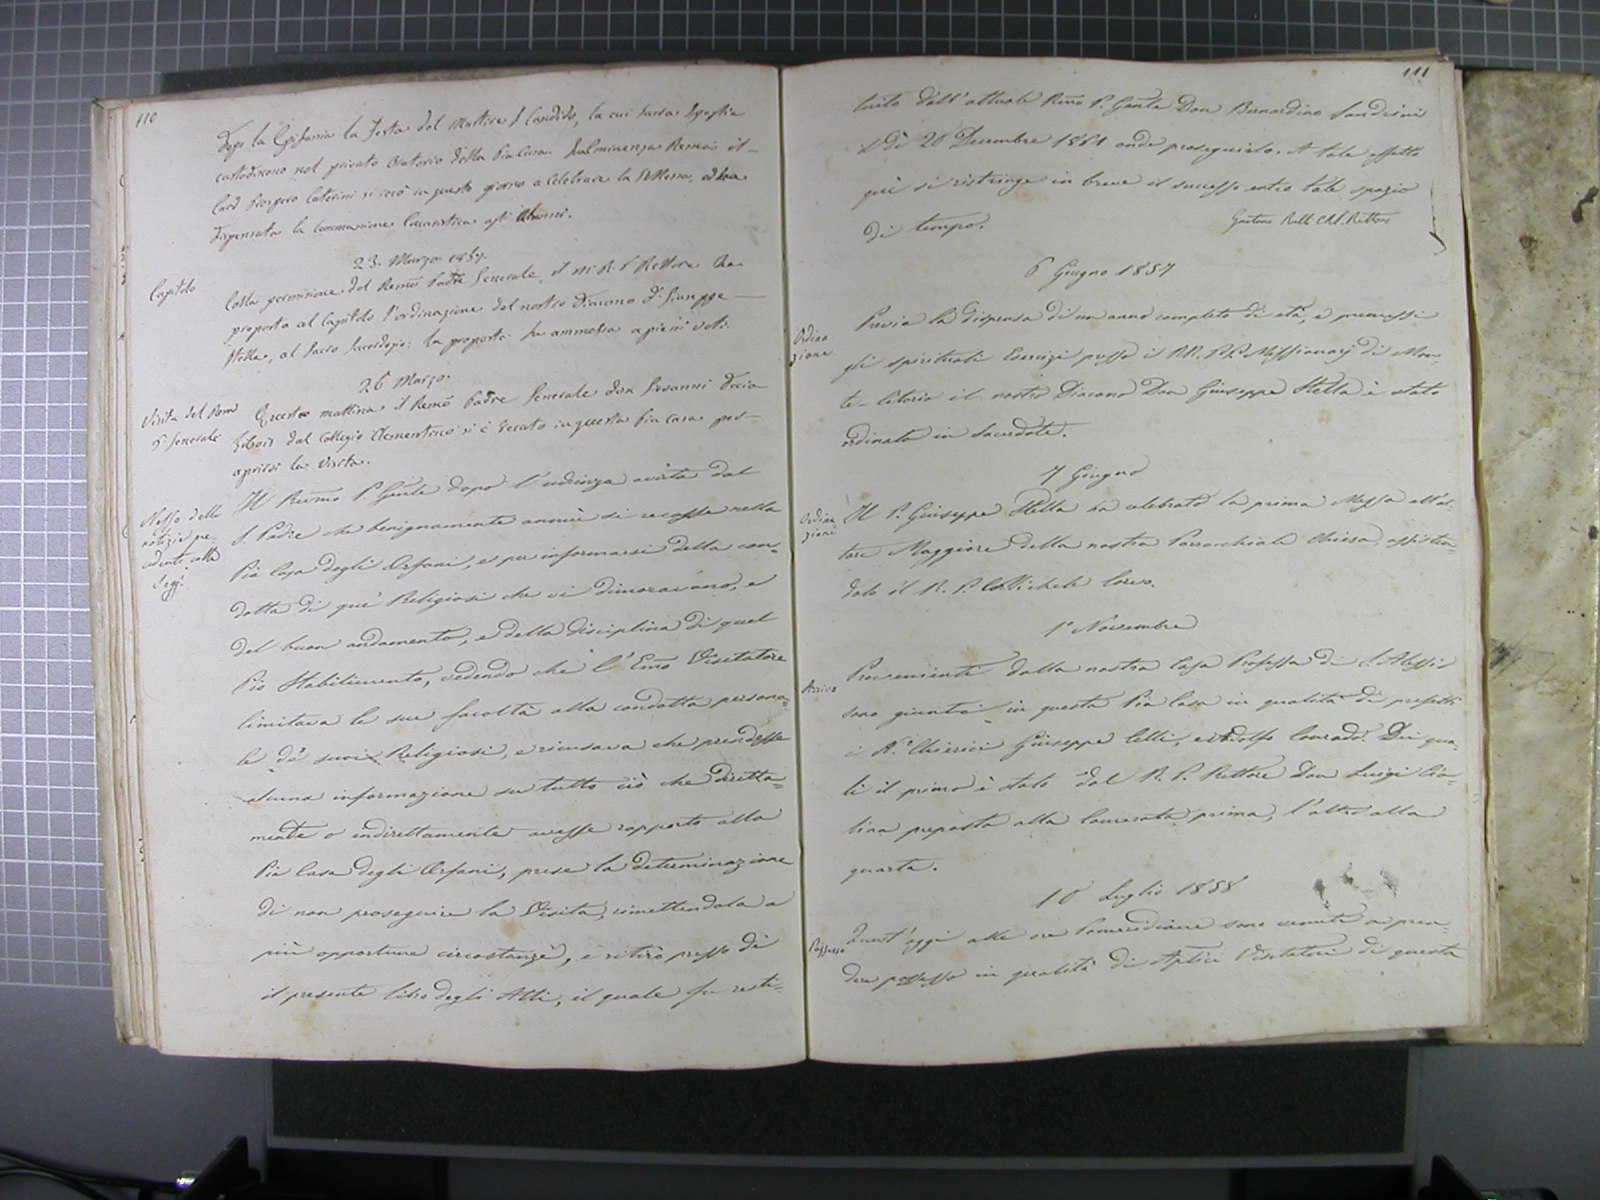 110
Dopo la Epifania la Festa del Martire S. Candido, la cui sacra spoglia
custodiscono nel privato Oratorio della Pia Casa. Sua Eminenza Rema il
Card Prospero Caterini si recò in questo giorno a celebrare la S. Messa, ed ha
dispensata la Communione Eucaristica agli Alunni.
23. Marzo 1857.
Capitolo
Colla permissione del Remo Padre Generale, il M. R. P. Rettore ha
proposto al Capitolo l'ordinazione del nostro Diacono D. Giuseppe
Stella, al Sacro Sacerdozio: la proposta fu ammessa a pieni voti.
26 Marzo.
Visita del Rmo
P. Generale
Questa mattina il Remo Padre Generale don Giovanni Decio
Libois dal Collegio Clementino si è recato in questa Pia Casa per
aprirsi la visita.
Nesso delle
notizie pre-
cedenti alle
segg.
Il Remo P. Gnle dopo l'udienza avuta dal
S. Padre che benignamente annuì si recasse nella
Pia Casa degli Orfani, e per informarsi della con=
dotta di que' Religiosi che vi dimoravano, e
del buon andamento, e della disciplina di quel
Pio Stabilimento, vedendo che l'Emo Visitatore
limitava le sue facoltà alla condotta persona=
le de' suoi Religiosi, e ricusava che prendesse
alcuna informazione su tutto ciò che diretta=
mente o indirettamente avesse rapporto alla
Pia Casa degli Orfani, prese la determinazione
di non proseguire la Visita, rimettendola a
più opportune circostanze, e ritirò presso di
il presente libro degli Atti, il quale fu resti=
111
tuito dall'attuale Rmo P. Gnle Don Bernardino Sandrini
il dì 20 Decembre 1861 onde proseguirlo. A tale effetto
quì si ristringe in breve il successo entro tale spazio
di tempo.
Gaetano Rettore
6 Giugno 1857
Ordina
zione
Previa la dispensa di un anno completo di età, e premessi
gli spirituali Esercizi presso i RR. PP. Missionarj di Mon=
te Citorio il nostro Diacono Don Giuseppe Stella è stato
ordinato in Sacerdote.
7 Giugno
Ordina
zioni
Il P. Giuseppe Stella ha celebrato la prima Messa all'al=
tare Maggiore della nostra Parrocchiale Chiesa assisten=
dolo il R. P. D. Michele
1º Novembre
Arrivo
Provenienti dalla nostra Casa Professa di S. Alessio
sono giunti in questa Pia Casa in qualità di prefetti
i R.i Chierici Giuseppe Celli, ed Adolfo Conrado. Dei qua=
li il primo è stato dal R. P. Rettore Don Luigi
preposto alla Camerata prima, l'altro alla
quarta.
10 Luglio 1858
Possesso
Quest'oggi alle ore pomeridiane sono venuti a pren=
dere possesso in qualità di Aplici Visitatori di questa